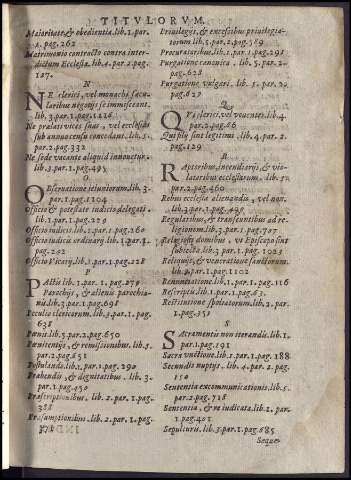 TITVLORVM.
Maioritate, & obedientia. lib. 1. par.
2. pag. 262
Matrimonio contracto contra inter-
dictum Ecclesiæ. lib. 4. par. 2. pag.
127.
N
NE clerici, vel monachi sæcu-
laribus negotijs se immisceant.
lib. 3. par. 1. pag. 1216
Ne prælati vices suas, vel ecclesias
sub annuo censu concedant. lib. 5.
par. 2. pag. 332
Ne sede vacante aliquid innouetur.
lib. 3. par. 1. pag. 495
O
OBseruatione ieiuniorum. lib. 3.
par. 1. pag. 1104
Officio & potestate iudicis delegati.
lib. 1. par. 1. pag. 229
Officio iudicis. lib. 1. par. 2. pag. 260
Officio iudicis ordinarij. lib. 1. par. 1.
pag. 292
Officio Vicarij. lib. 1. par. 1. pag. 228
P
PActis lib. 1. par. 1. pag. 270
Parochijs, & alienis parochia-
nis. lib. 3. par. 1. pag. 698
Peculio clericorum. lib. 3. par. 1. pag.
638
Pœnis. lib. 5. par. 2. pag. 650
Pœnitentijs, & remissionibus. lib. 5.
par. 2. pag. 651
Postulando. lib. 1. par. 1. pag. 290
Præbendis, & dignitatibus. lib. 3.
par. 1. pag. 150
Præscriptionibus. lib. 2. par. 1. pag.
388
Præsumptionibus. lib. 2. par. 1. pag.
Priuilegijs, & excessibus priuilegia-
torum lib. 5. par. 2. pag. 589
Procuratoribus. lib. 1. par. 1. pag. 291
Purgatione canonica. lib. 5. par. 2.
pag. 628
Purgatione vulgari. lib. 5. par. 2.
pag. 628
Q
QVi clerici, vel vouentes lib. 4.
par. 2. pag. 66
Qui filij sint legitimi. lib. 4. par. 2.
pag. 129
R
RAptoribus, incendiarijs, & vio-
latoribus ecclesiarum. lib. 5.
par. 2. pag. 460
Rebus ecclesiæ alienandis, vel non.
lib. 3. par. 1. pag. 499
Regularibus, & transeuntibus ad re-
ligionem. lib. 3. par. 1. pag. 707
Religiosis domibus, vt Episcopo sint
subiectæ. lib. 3. par. 1. pag. 1023
Reliquijs, & veneratione sanctorum.
lib. 3. par. 1. pag. 1102
Renuntiatione. lib. 1. par. 1. pag. 116
Rescriptis. lib. 1. par. 1. pag. 63.
Restitutione spoliatorum. lib. 2. par.
1. pag. 353
S
SAcramentis non iterandis. lib. 1.
par. 1. pag. 191
Sacra vnctione. lib. 1. par. 1. pag. 188
Secundis nuptijs. lib. 4. par. 2. pag.
150
Sententia excommunicationis. lib. 5.
par. 2. pag. 728
Sententia, & re iudicata. lib. 2. par.
1. pag. 401
Sepulturis. lib. 3. par. 1. pag. 685
Seque